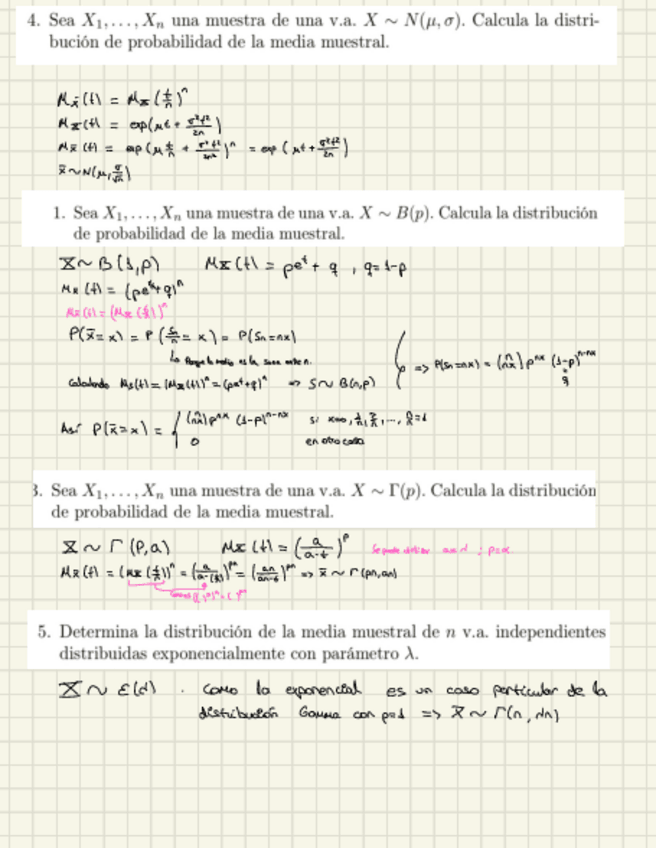 4. Sea X₁, . . . , Xₙ una muestra de una v.a. X ∼ N(μ, σ). Calcula la distri-
bución de probabilidad de la media muestral.
M_x̄(t) = M_X(t/n)ⁿ
M_X(t) = exp(μt + σ²t²/2n)
M_x̄(t) = exp(μ t/n + σ²t²/2n²)ⁿ = exp(μt + σ²t²/2n)
x̄ ∼ N(μ, σ/√n)
1. Sea X₁, . . . , Xₙ una muestra de una v.a. X ∼ B(p). Calcula la distribución
de probabilidad de la media muestral.
X ∼ B(1,p) M_X(t) = peᵗ + q , q=1-p
M_x̄(t) = (pe^(t/n)+q)ⁿ
M_x̄(t) = (M_X(t/n))ⁿ
P(x̄=x) = P(Sn/n = x) = P(Sn=nx)
Lo la media es la suma entre n.
=> P(Sn=nx) = (n nx) p^(nx) (1-p)^(n-nx)
q
Calculando Ms(t) = (M_X(t))ⁿ = (peᵗ+q)ⁿ => S∼B(n,p)
Así P(x̄=x) = { (n nx) p^(nx) (1-p)^(n-nx) si x=0, 1/n, 2/n, ..., n/n=1
0 en otro caso
3. Sea X₁, . . . , Xₙ una muestra de una v.a. X ∼ Γ(p). Calcula la distribución
de probabilidad de la media muestral.
X ∼ Γ(p,a) M_X(t) = (a/(a-t))^p Se puede
M_x̄(t) = (M_X(t/n))ⁿ = (a/(a-(t/n)))^(pn) = (an/(an-t))^(pn) => x̄ ∼ Γ(pn,an)
5. Determina la distribución de la media muestral de n v.a. independientes
distribuidas exponencialmente con parámetro λ.
X ∼ ε(λ) . Como la exponencial es un caso particular de la
distribución Gamma con p=1 => x̄ ∼ Γ(n, λn)